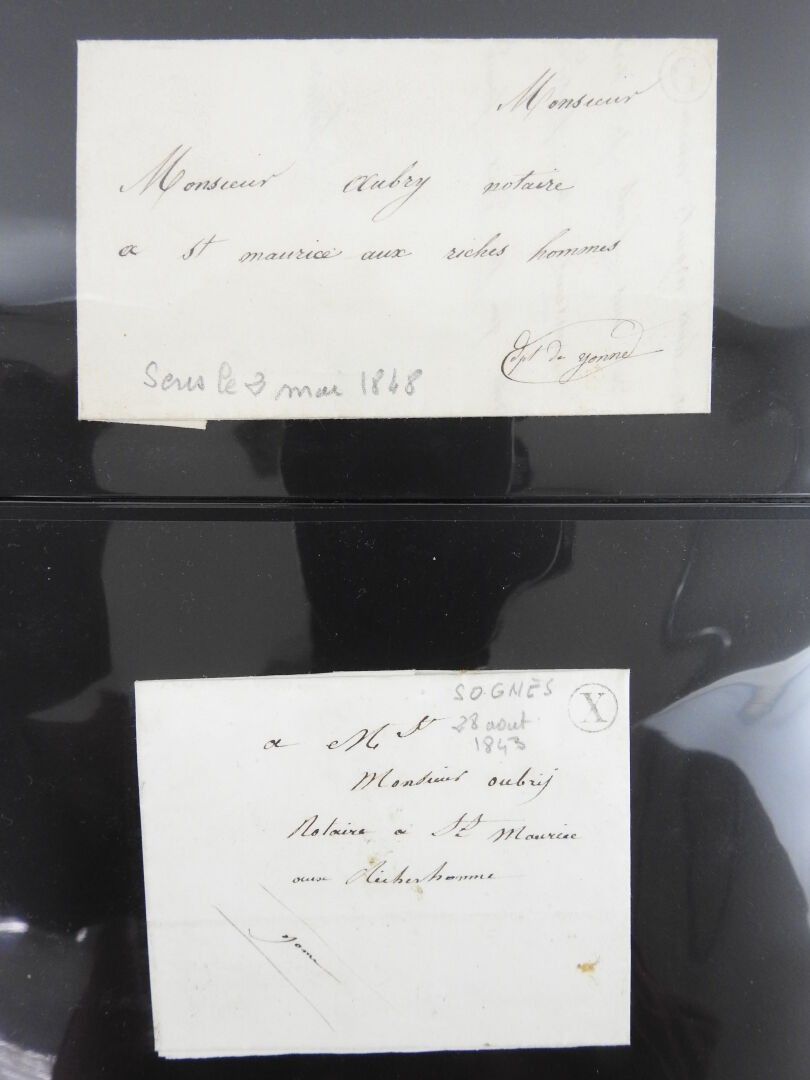 Monsieur
Monsieur Aubry notaire
a St maurice aux riches hommes
dpt de yonne
Sens le 3 mai 1848
SOGNES
28 aout
1843
X
a Mr
Monsieur oubrij
Notaire a St Maurice
aux Richerhomme
yonne